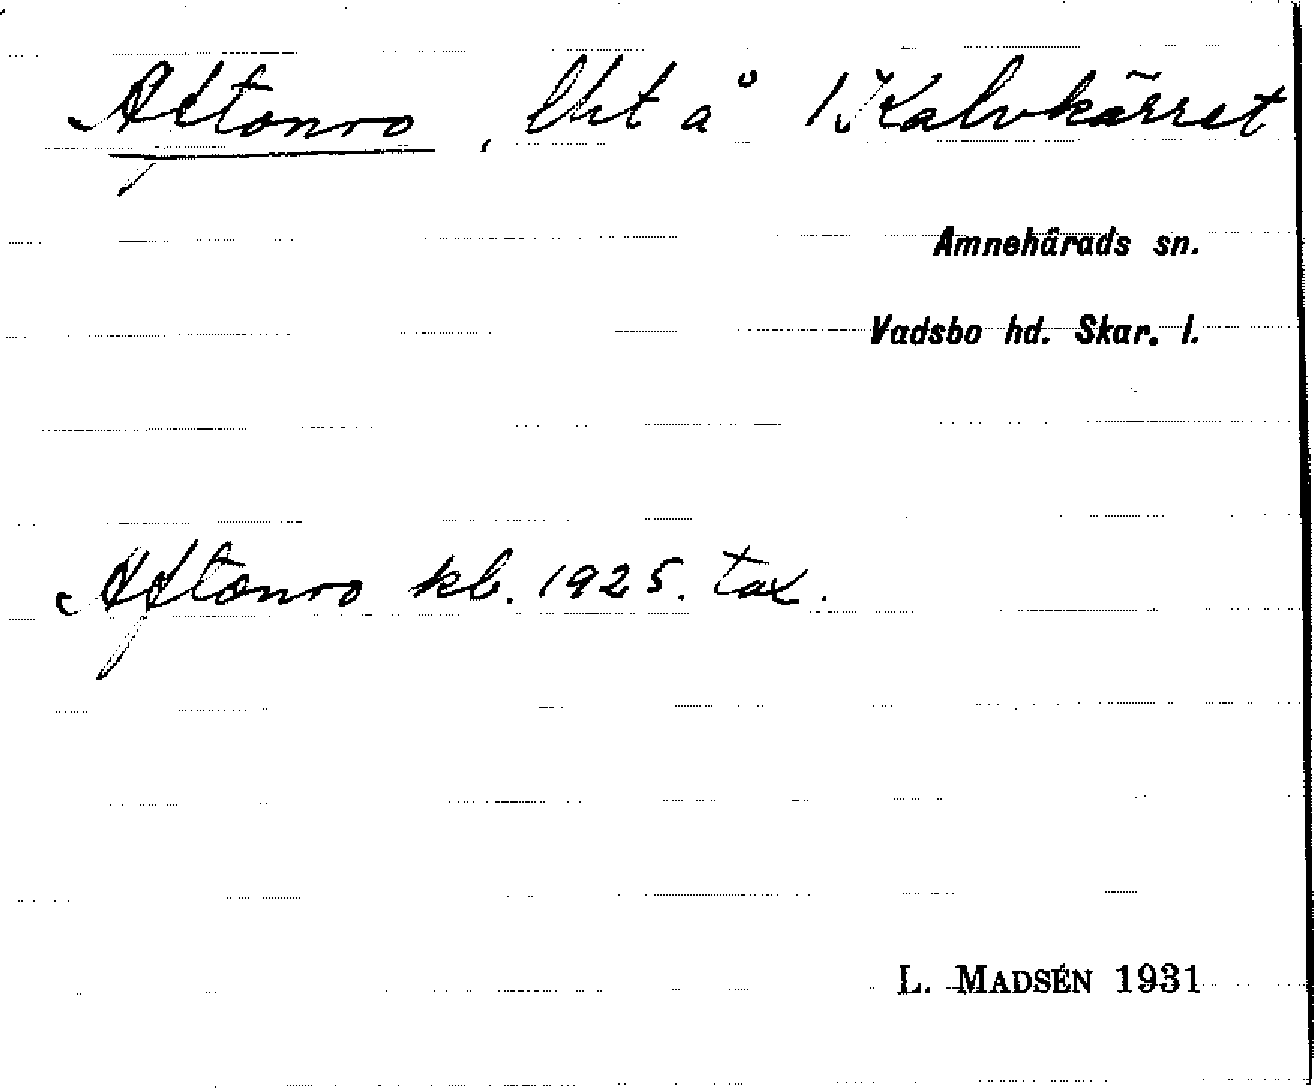 Aftonro, lht å 1 Kalvkärret
Amnehärads sn.
Vadsbo hd. Skar. l.
Aftonro kb. 1925. tax.
L. MADSÉN 1931